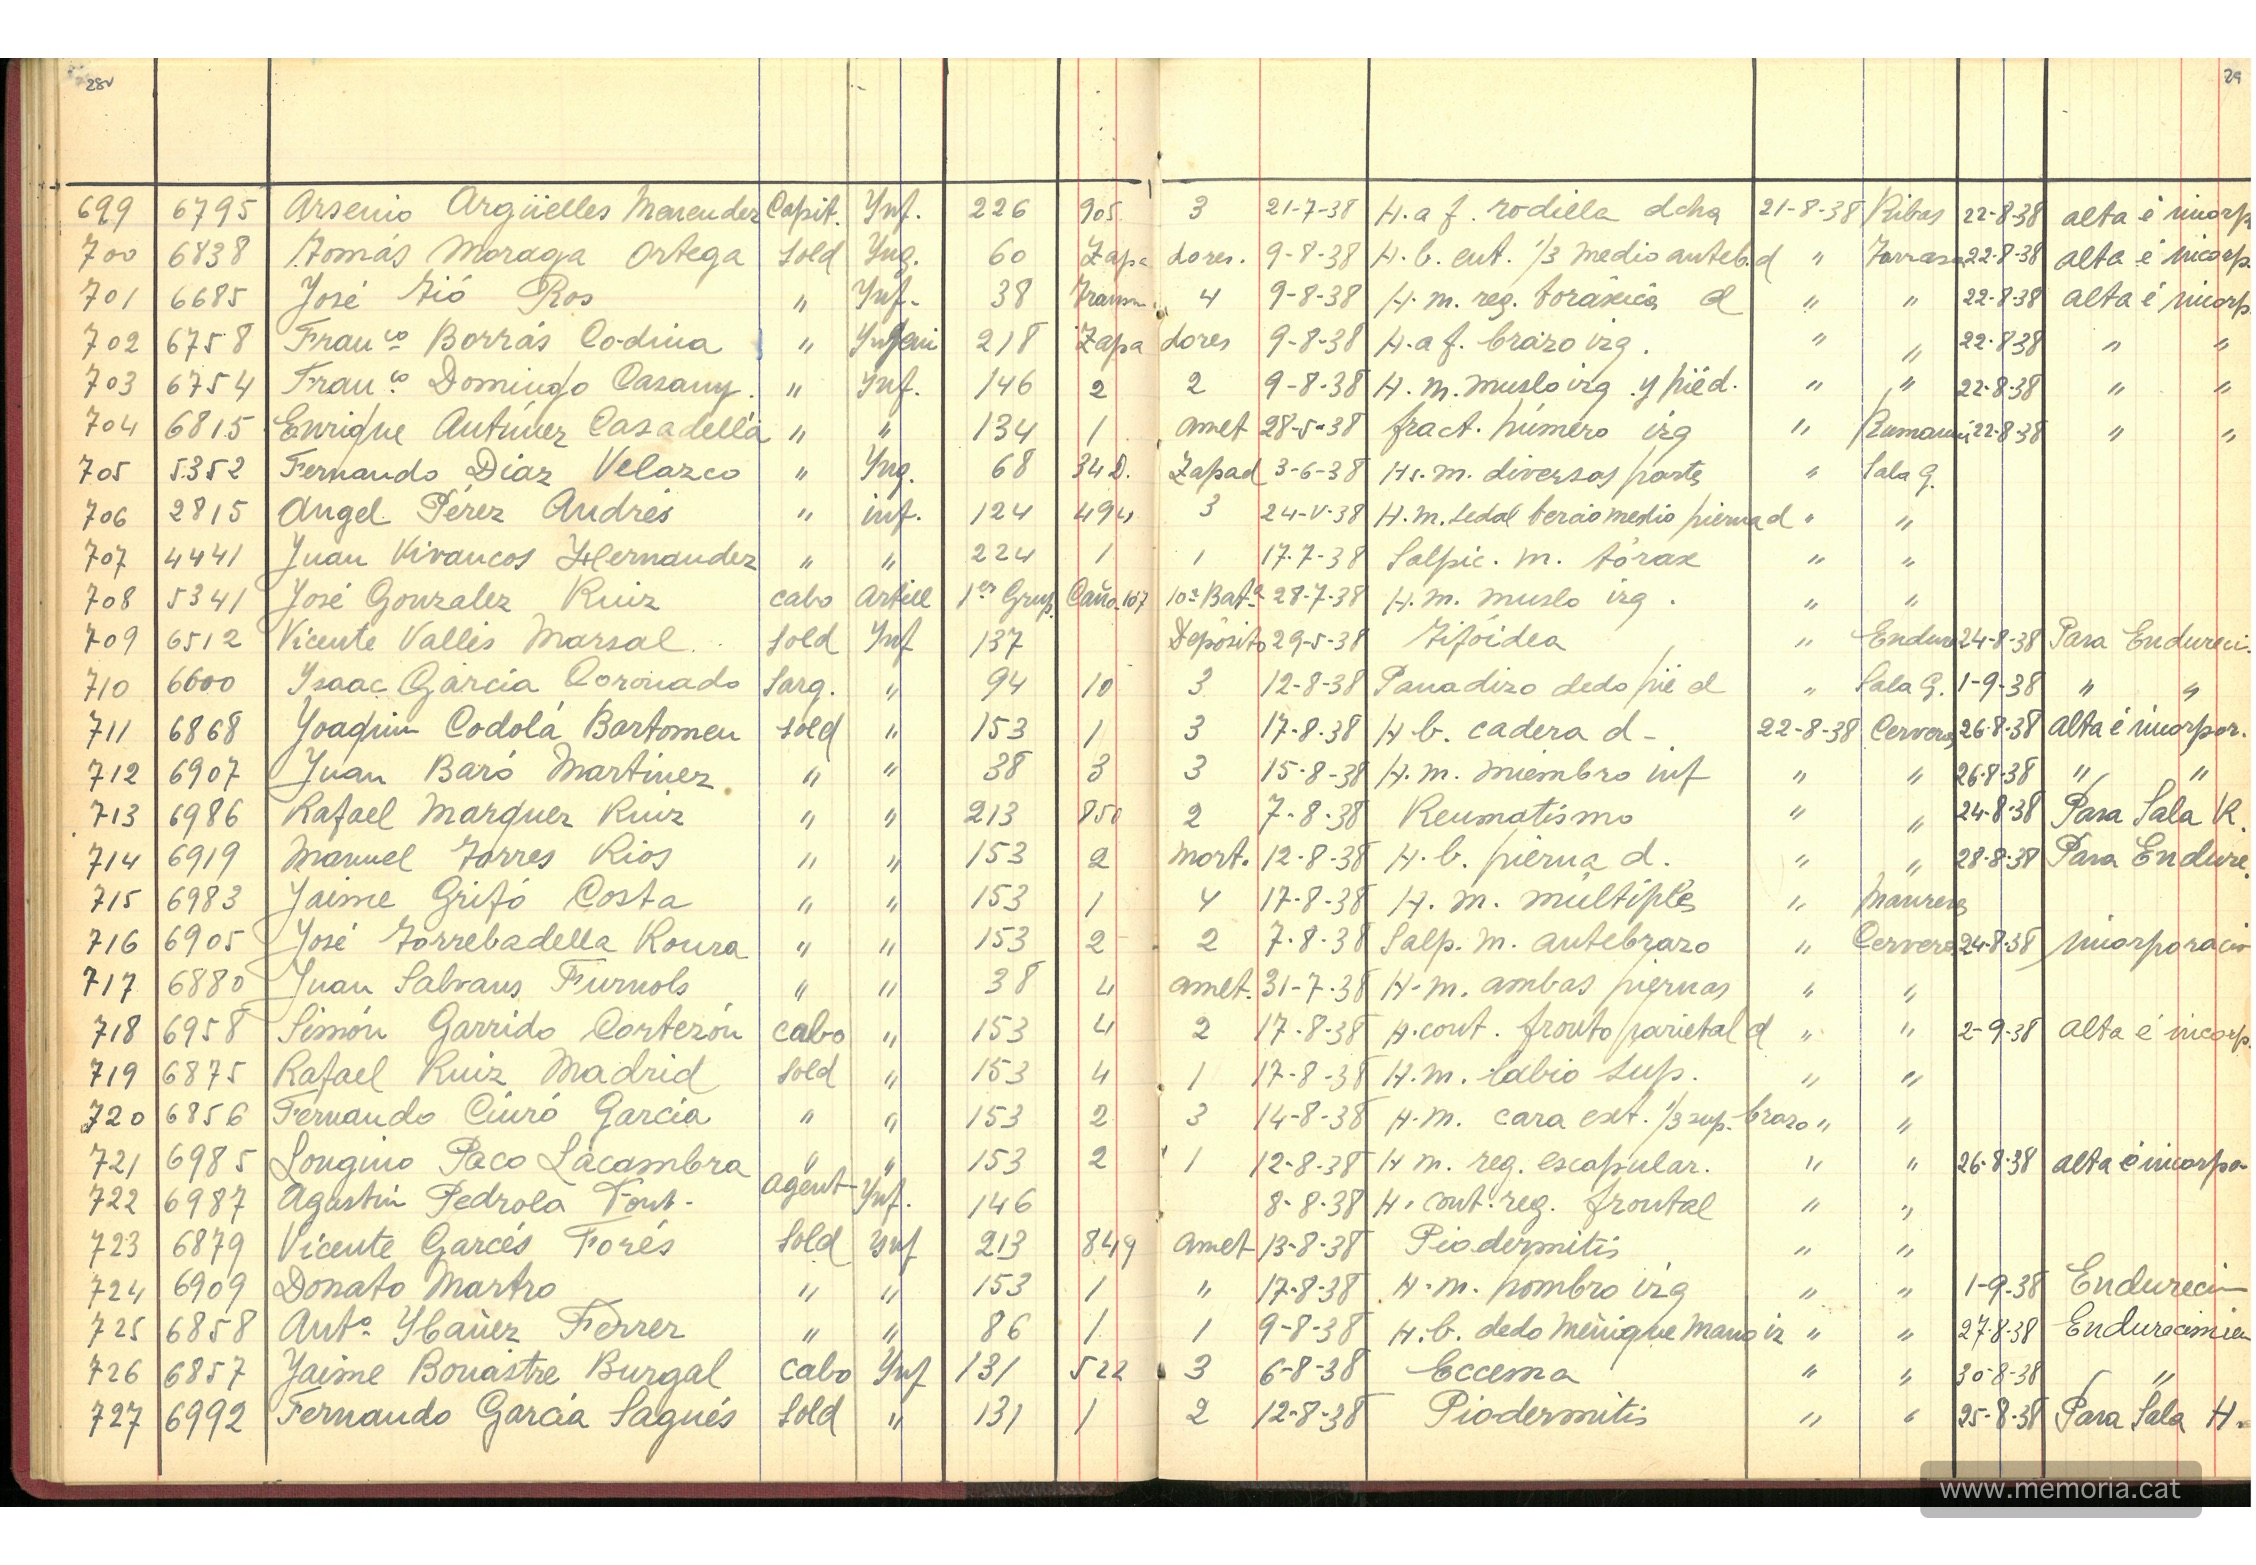 28v 29
699 6795 Arsenio Argüelles Menendez Capit. Ynf. 226 905 3 21-7-38 H. a f. rodilla dcha 21-8-38 Ribas 22-8-38 alta é incorp
700 6838 Tomás Moraga Ortega Sold Yng. 60 Zapa dores. 9-8-38 H. b. ent. 1/3 medio anteb. d " Tarrasa 22-8-38 alta é incorp.
701 6685 José Tió Ros " Ynf. 38 Transm. 4 9-8-38 H. m. reg. toráxica d " " 22-8-38 alta é incorp.
702 6758 Franco Borrás Codina " 218 Zapa dores 9-8-38 H. a f. brazo izq. " " 22-8-38 " "
703 6754 Franco Domingo Casany. " Ynf. 146 2 2 9-8-38 H. m. muslo izq. y pié d. " " 22-8-38 " "
704 6815 Enrique Antúnez Casadellá " " 134 1 amet 28-5-38 fract. húmero izq " 22-8-38 " "
705 5352 Fernando Diaz Velazco " Yng. 68 34 D. Zapad 3-6-38 Hs. m. diversas parts " Sala G.
706 2815 Angel Pérez Andrés " inf. 124 494 3 24-V-38 H. m. Sedal tercio medio pierna d " "
707 4441 Juan Vivancos Hernandez " " 224 1 1 17-7-38 Salpic. m. tórax " "
708 5341 José Gonzalez Ruiz cabo Artill 1er Grup. Caño. 107 10a Bata 28-7-38 H. m. muslo izq. " "
709 6512 Vicente Vallés Marsal Sold Ynf 137 Depósito 29-5-38 Tifóidea " Endure 24-8-38 Para Endureci.
710 6600 Ysaac Garcia Coronado Sarg. " 94 10 3 12-8-38 Panadizo dedo pié d " Sala G. 1-9-38 " "
711 6868 Yoaquin Codolá Bartomeu Sold " 153 1 3 17-8-38 H b. cadera d - 22-8-38 Cervera 26-8-38 alta é incorpor.
712 6907 Juan Baró Martinez " " 38 3 3 15-8-38 H. m. miembro inf " " 26-8-38 " "
713 6986 Rafael Marquez Ruiz " " 213 850 2 7-8-38 Reumatismo " " 24-8-38 Para Sala R.
714 6919 Manuel Torres Rios " " 153 2 mort. 12-8-38 H. b. pierna d. " " 28-8-38 Para Endure.
715 6983 Jaime Grifó Costa " " 153 1 4 17-8-38 H. m. múltiples " Manresa
716 6905 José Torrebadella Roura " " 153 2 2 7-8-38 Salp. m. antebrazo " Cervera 24-8-38 incorporacio
717 6880 Juan Salvans Furnols " " 38 4 amet. 31-7-38 H-m. ambas piernas " "
718 6958 Simón Garrido Cortezón cabo " 153 4 2 17-8-38 H. cont. fronto parietal d " " 2-9-38 alta é incorp.
719 6875 Rafael Ruiz Madrid Sold " 153 4 1 17-8-38 H. m. labio sup. " "
720 6856 Fernando Ciuró Garcia " " 153 2 3 14-8-38 H. m. cara ext. 1/3 sup. brazo " "
721 6985 Longino Paco Lacambra " " 153 2 1 12-8-38 H m. reg. escapular. " " 26-8-38 alta é incorpo-
722 6987 Agustin Pedrola Font. agent Ynf. 146 8-8-38 H. cont. reg. frontal " "
723 6879 Vicente Garcés Forés Sold Ynf 213 849 amet 13-8-38 Piodermitis " "
724 6909 Donato Martro " " 153 1 " 17-8-38 H. m. hombro izq " " 1-9-38 Endureci-
725 6858 Anto. Ybañez Ferrer " " 86 1 1 9-8-38 H. b. dedo meñique mano iz " " 27-8-38 Endurecimien
726 6857 Jaime Bonastre Burgal cabo Ynf 131 522 3 6-8-38 Eccema " " 30-8-38 " "
727 6992 Fernando Garcia Sagués Sold " 131 1 2 12-8-38 Piodermitis " " 25-8-38 Para Sala H.
www.memoria.cat